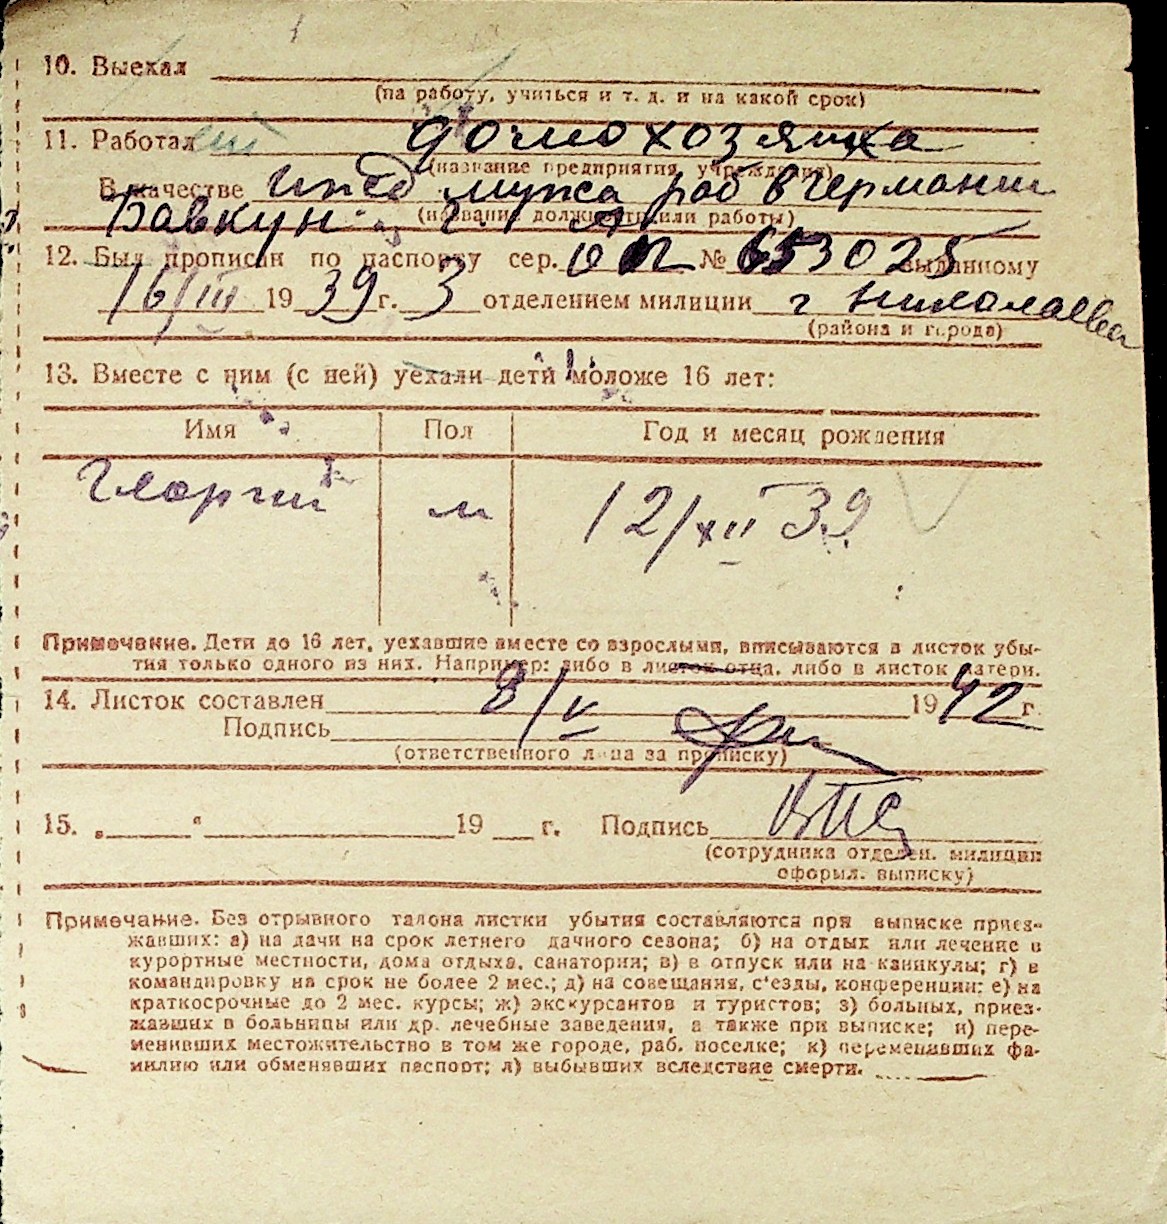 10. Выехал
(на работу, учиться и т. д. и на какой срок)
11. Работал домохозяйка
(название предприятия, учреждения)
В качестве ижд мужа раб в Германии
(название должности или работы)
Бавкун
12. Был прописан по паспорту сер. № 653025 выданному
16/III 1939 г. 3 отделением милиции г Николаева
(района и города)
13. Вместе с ним (с ней) уехали дети моложе 16 лет:
Имя Пол Год и месяц рождения
Георгий м 12/XII 39
Примечание. Дети до 16 лет, уехавшие вместе со взрослыми, вписываются в листок убы-
тия только одного из них. Например: либо в листок отца, либо в листок матери.
14. Листок составлен 8/V 1942 г.
Подпись
(ответственного лица за прописку)
15. „ “ 19 г. Подпись
(сотрудника отделен. милиции
оформл. выписку)
Примечание. Без отрывного талона листки убытия составляются при выписке приез-
жавших: а) на дачи на срок летнего дачного сезона; б) на отдых или лечение в
курортные местности, дома отдыха, санатория; в) в отпуск или на каникулы; г) в
командировку на срок не более 2 мес.; д) на совещания, с'езды, конференции; е) на
краткосрочные до 2 мес. курсы; ж) экскурсантов и туристов; з) больных, приез-
жавших в больницы или др. лечебные заведения, а также при выписке; и) пере-
менивших местожительство в том же городе, раб. поселке; к) переменивших фа-
милию или обменявших паспорт; л) выбывших вследствие смерти.